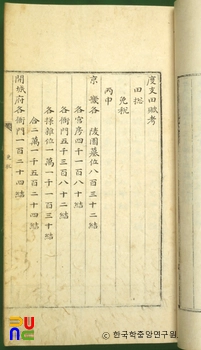 度支田賦考
田摠
免稅
丙申
京畿各 陵園墓位八百三十二結
各宮房四千一百八十二結
各衙門五千三百八十二結
各樣雜位一萬一千一百三十結
合二萬一千五百二十四結
開城府各衙門一百二十四結
한국학중앙연구원